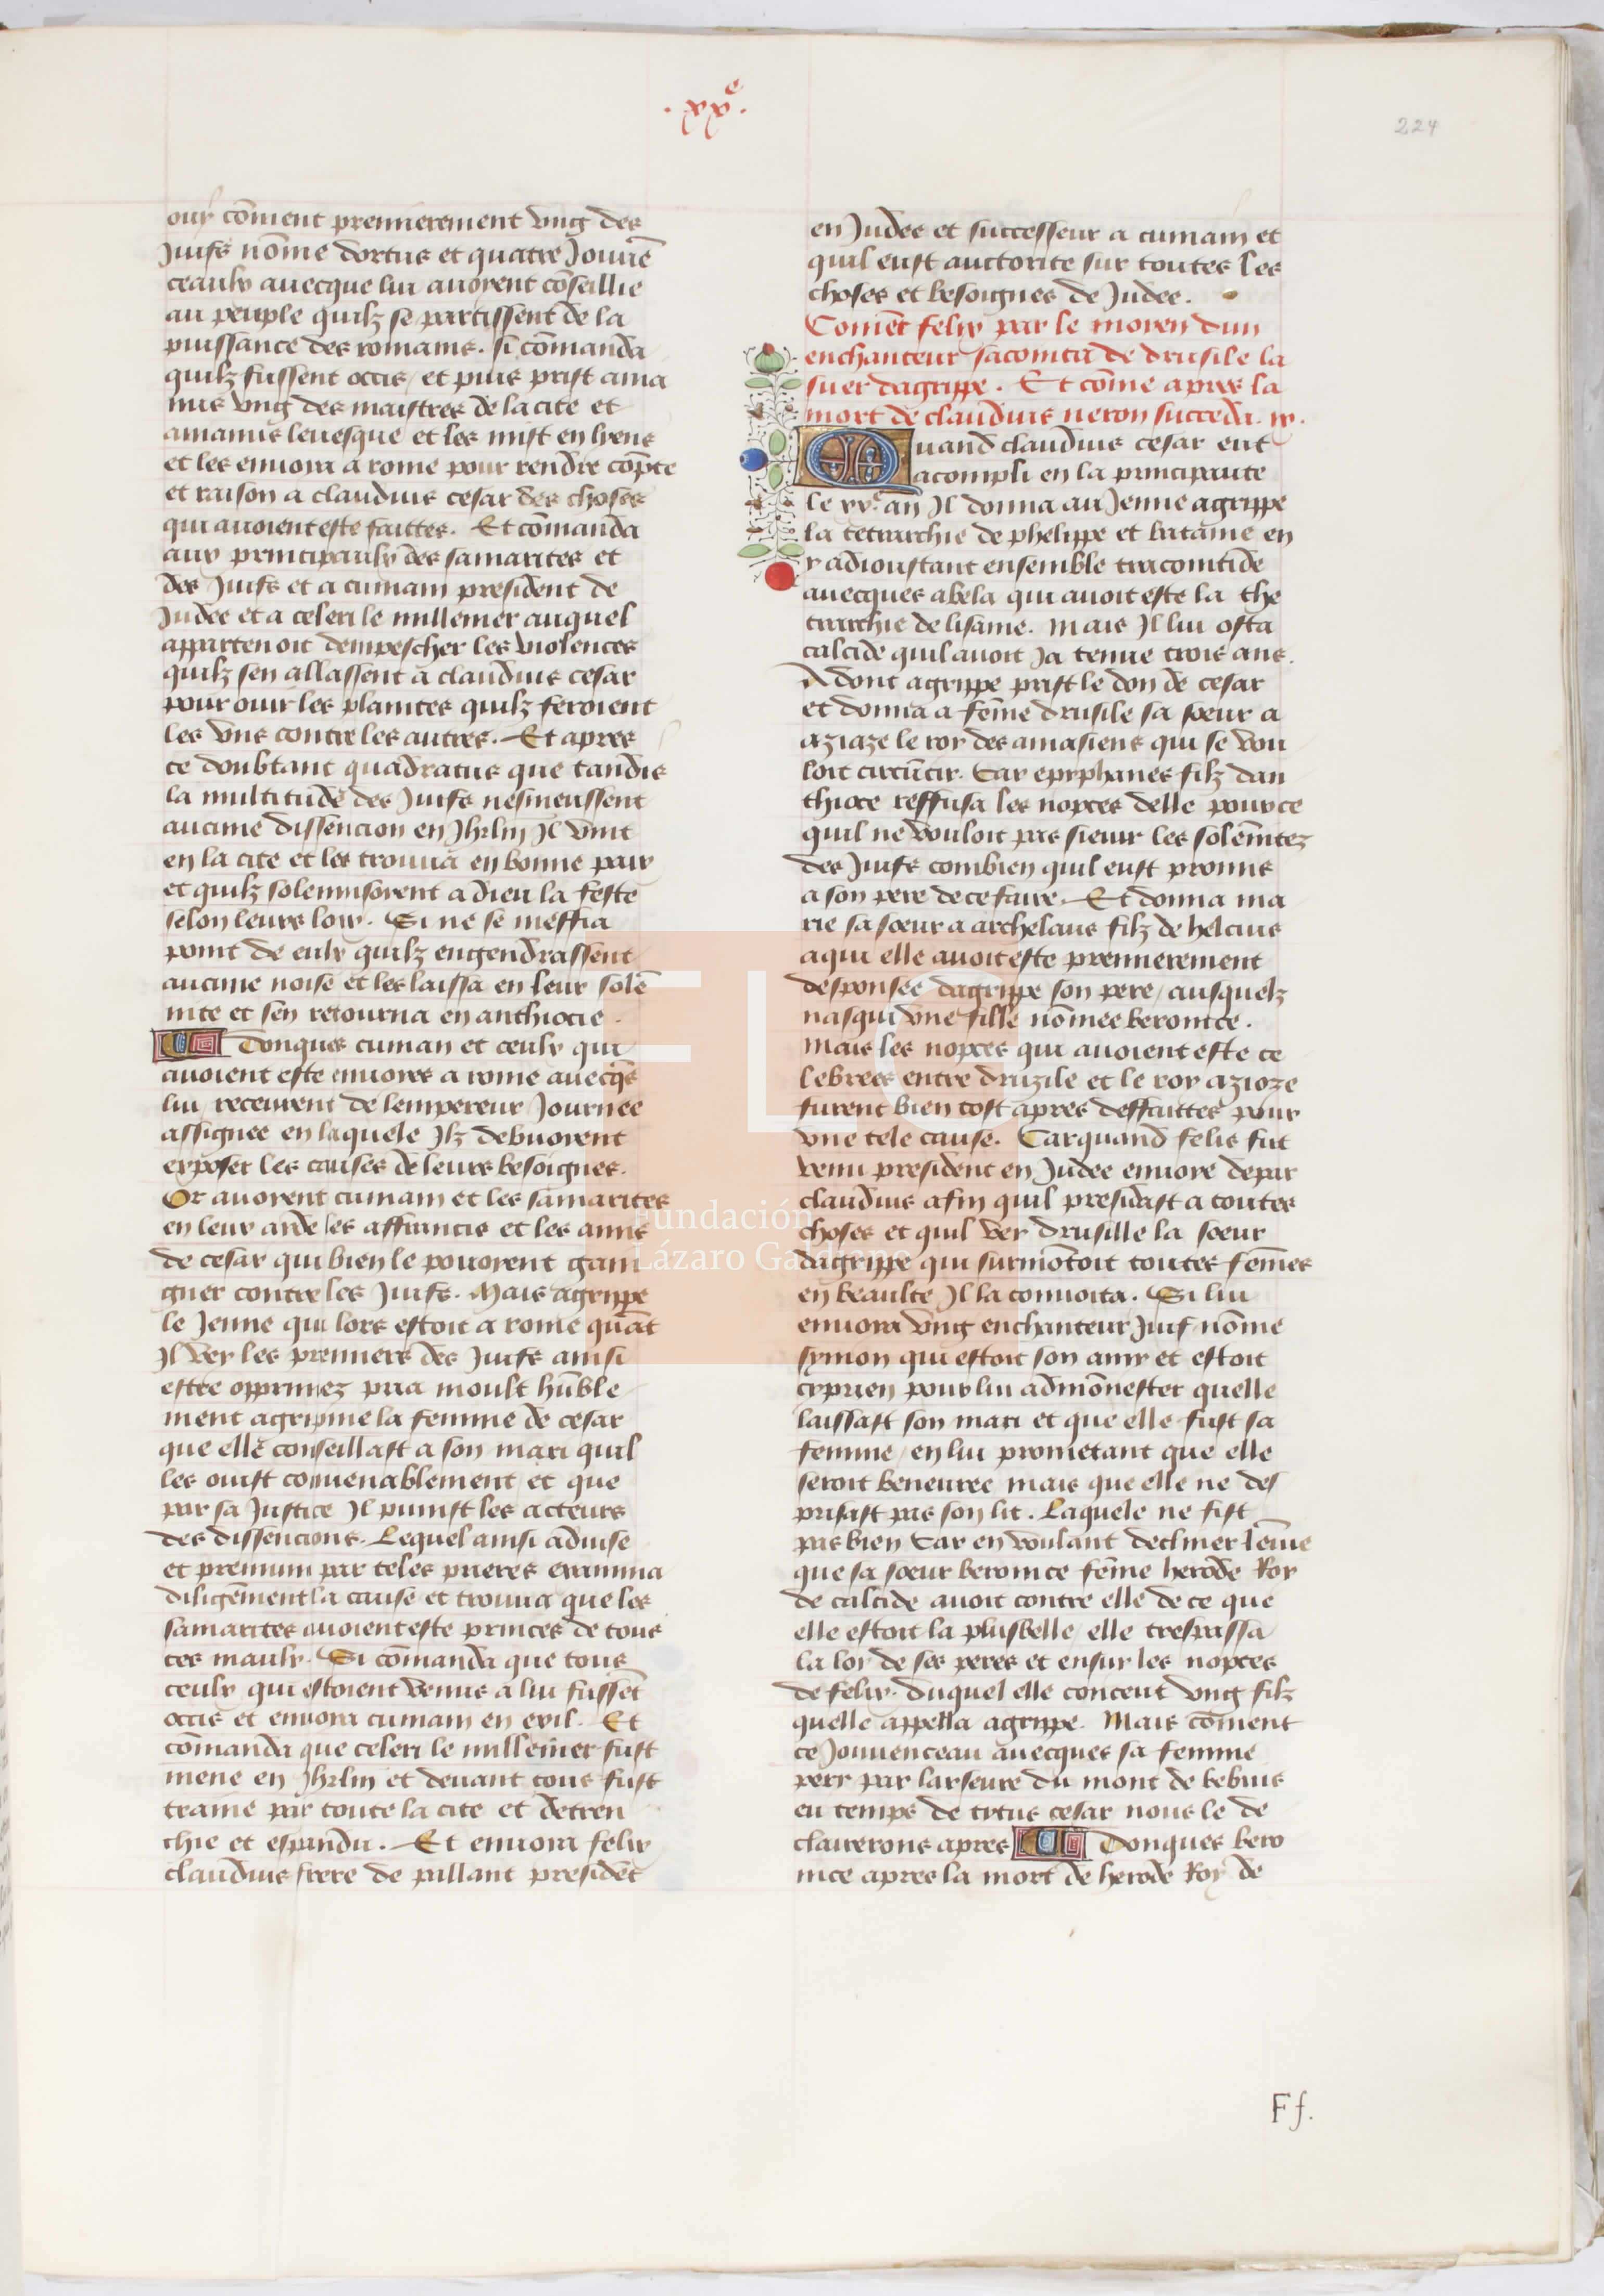 .xxe.
224
ouy cōment premierement vng des
Juifs nōme dortus et quatre Jouuē
ceaulx auecque lui auoyent cōseillie
au peuple quilz se partissent de la
puissance des romains. si cōmanda
quilz fussent occis / et puis prist ana
nus vng des maistres de la cite et
ananus leuesque et les mist en lyens
et les enuoia a rome pour rendre cōpte
et raison a claudius cesar des choses
qui auoient este faittes. Et cōmanda
aux principaulx des samarites et
des Juifs et a cumam president de
Judee et a celeri le millenier auquel
appartenoit dempescher les violences
quilz sen allassent a claudius cesar
pour ouir les plaintes quilz feroient
les vns contre les autres. Et apres
ce doubtant quadratus que tandis
la multitude des Juifs nesmeussent
aucune dissencion en Jhrlm Il vint
en la cite et les trouua en bonne paix
et quilz solennisoient a dieu la feste
selon leurs loix. Si ne se meffia
point de eulx quilz engendrassent
aucune noise et les laissa en leur solē
nite et sen retourna en anthiocie.
Donques cuman et ceulx qui
auoient este enuoyes a rome auecqs
lui / receurent de lempereur Journee
assignee en laquele Ilz debuoyent
exposer les causes de leurs besoignes.
Or auoyent cumam et les samarites
en leur aide les affrancis et les amis
de cesar qui bien le pouoyent gaai
gner contre les Juifs. Mais agrippe
le Jenne qui lors estoit a rome quāt
Il vey les premiers des Juifs ainsi
estre opprimez pria moult hūble
ment agripine la femme de cesar
que elle conseillast a son mari quil
les ouist conuenablement et que
par sa Justice Il punist les acteurs
des dissencions. Lequel ainsi aduise
et premuni par teles prieres examina
diligēment la cause et trouua que les
samarites auoient este princes de tous
ces maulx. Si cōmanda que tous
ceulx qui estoient venus a lui fussēt
occis et enuoia cumam en exil. Et
cōmanda que celeri le millenier fust
mene en Jhrlm et deuant tous fust
traine par toute la cite et detren
chie et espandu. Et enuoia felix
claudius frere de pallant presidēt
en Judee et successeur a cumam et
quil eust auctorite sur toutes les
choses et besoignes de Judee.
Comēt felix par le moyen dun
enchanteur sacointa de drusile la
suer dagrippe. Et cōme apres la
mort de claudius neron succeda. ix.
Quand claudius cesar eut
acompli en la principaute
le xxe. an Il donna au Jenne agrippe
la tetrarchie de phelippe et batame en
y adioustant ensemble tracomtide
auecques abela qui auoit este la the
trarchie de lisame. Mais Il lui osta
calcide quil auoit Ja tenue trois ans.
Adont agrippe prist le don de cesar
et donna a fēme drusile sa soeur a
aziaze le roy des amasiens qui se vou
loit circūcir. Car epyphanes filz dan
thioce reffusa les nopces delle pour ce
quil ne vouloit pas sieuir les solēnitez
des Juifs combien quil eust promis
a son pere de ce faire. Et donna ma
rie sa soeur a archelaus filz de helcius
a qui elle auoit este premierement
desponsee dagrippe son pere / ausquelz
nasqui vne fille nōmee beronice.
Mais les nopces qui auoient este ce
lebrees entre druzile et le roy azioze
furent bien tost apres deffaittes pour
vne tele cause. Car quand felis fut
venu president en Judee enuoye depar
claudius afin quil presidast a toutes
choses et quil vey drusille la soeur
dagrippe qui surmōtoit toutes fēmes
en beaulte Il la conuoita. Si lui
enuoia vng enchanteur Juif nōme
symon qui estoit son amy et estoit
cyprien pour lui admōnester quelle
laissast son mari et que elle fust sa
femme / en lui prometant que elle
seroit beneuree mais que elle ne des
prisast pas son lit. Laquele ne fist
pas bien Car en voulant decliner lēuie
que sa soeur beronice fēme herode Roy
de calcide auoit contre elle de ce que
elle estoit la plus belle / elle trespassa
la loy de ses peres et ensuy les nopces
de felix. duquel elle conceut vng filz
quelle appella agrippe. Mais cōment
ce Jouuenceau auecques sa femme
pery par larseure du mont de bebius
eu temps de tytus cesar nous le de
clairerons apres Donques bero
nice apres la mort de herode Roy de
Ff.
FLG
Fundación
Lázaro Galdiano